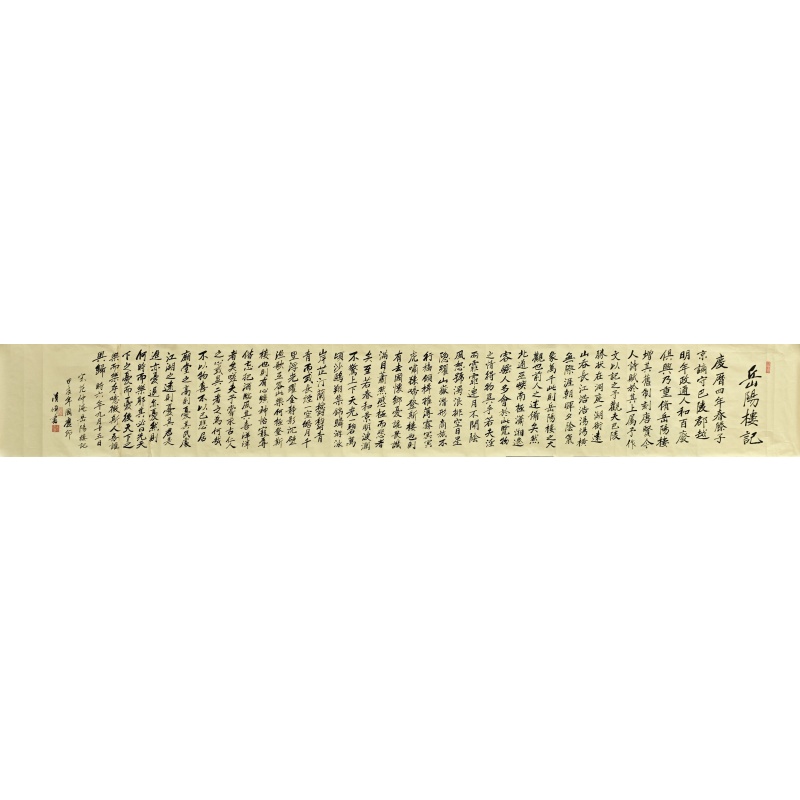 岳陽樓記
慶曆四年春滕子
京謫守巴陵郡越
明年政通人和百廢
俱興乃重脩岳陽樓
增其舊制刻唐賢今
人詩賦於其上屬予作
文以記之予觀夫巴陵
勝狀在洞庭一湖銜遠
山吞長江浩浩湯湯橫
無際涯朝暉夕陰氣
象萬千此則岳陽樓之大
觀也前人之述備矣然
北通巫峽南極瀟湘遷
客騷人多會於此覽物
之情得無異乎若夫淫
雨霏霏連月不開陰
風怒號濁浪排空日星
隱耀山嶽潛形商旅不
行檣傾楫摧薄暮冥冥
虎嘯猿啼登斯樓也則
有去國懷鄉憂讒畏譏
滿目蕭然感極而悲者
矣至若春和景明波瀾
不驚上下天光一碧萬
頃沙鷗翔集錦鱗游泳
岸芷汀蘭郁郁青
青而或長煙一空皓月千
里浮光耀金靜影沉璧
漁歌互答此樂何極登斯
樓也則有心曠神怡寵辱
偕忘把酒臨風其喜洋洋
者矣嗟夫予嘗求古仁人
之心或異二者之為何哉
不以物喜不以己悲居
廟堂之高則憂其民處
江湖之遠則憂其君是
進亦憂退亦憂然則
何時而樂耶其必曰先天
下之憂而憂後天下之
樂而樂乎噫微斯人吾誰
與歸 時六年九月十五日
宋范仲淹岳陽樓記
甲辰年國慶節
書